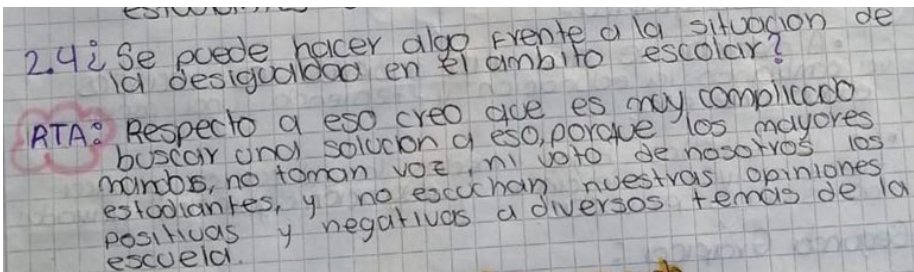 2.4¿ Se puede hacer algo frente a la situacion de
la desigualdad en el ambito escolar?
RTA: Respecto a eso creo que es muy complicado
buscar una solucion a eso, porque los mayores
mandos, no toman voz, ni voto de nosotros los
estudiantes, y no escuchan nuestras opiniones
positivas y negativas a diversos temas de la
escuela.